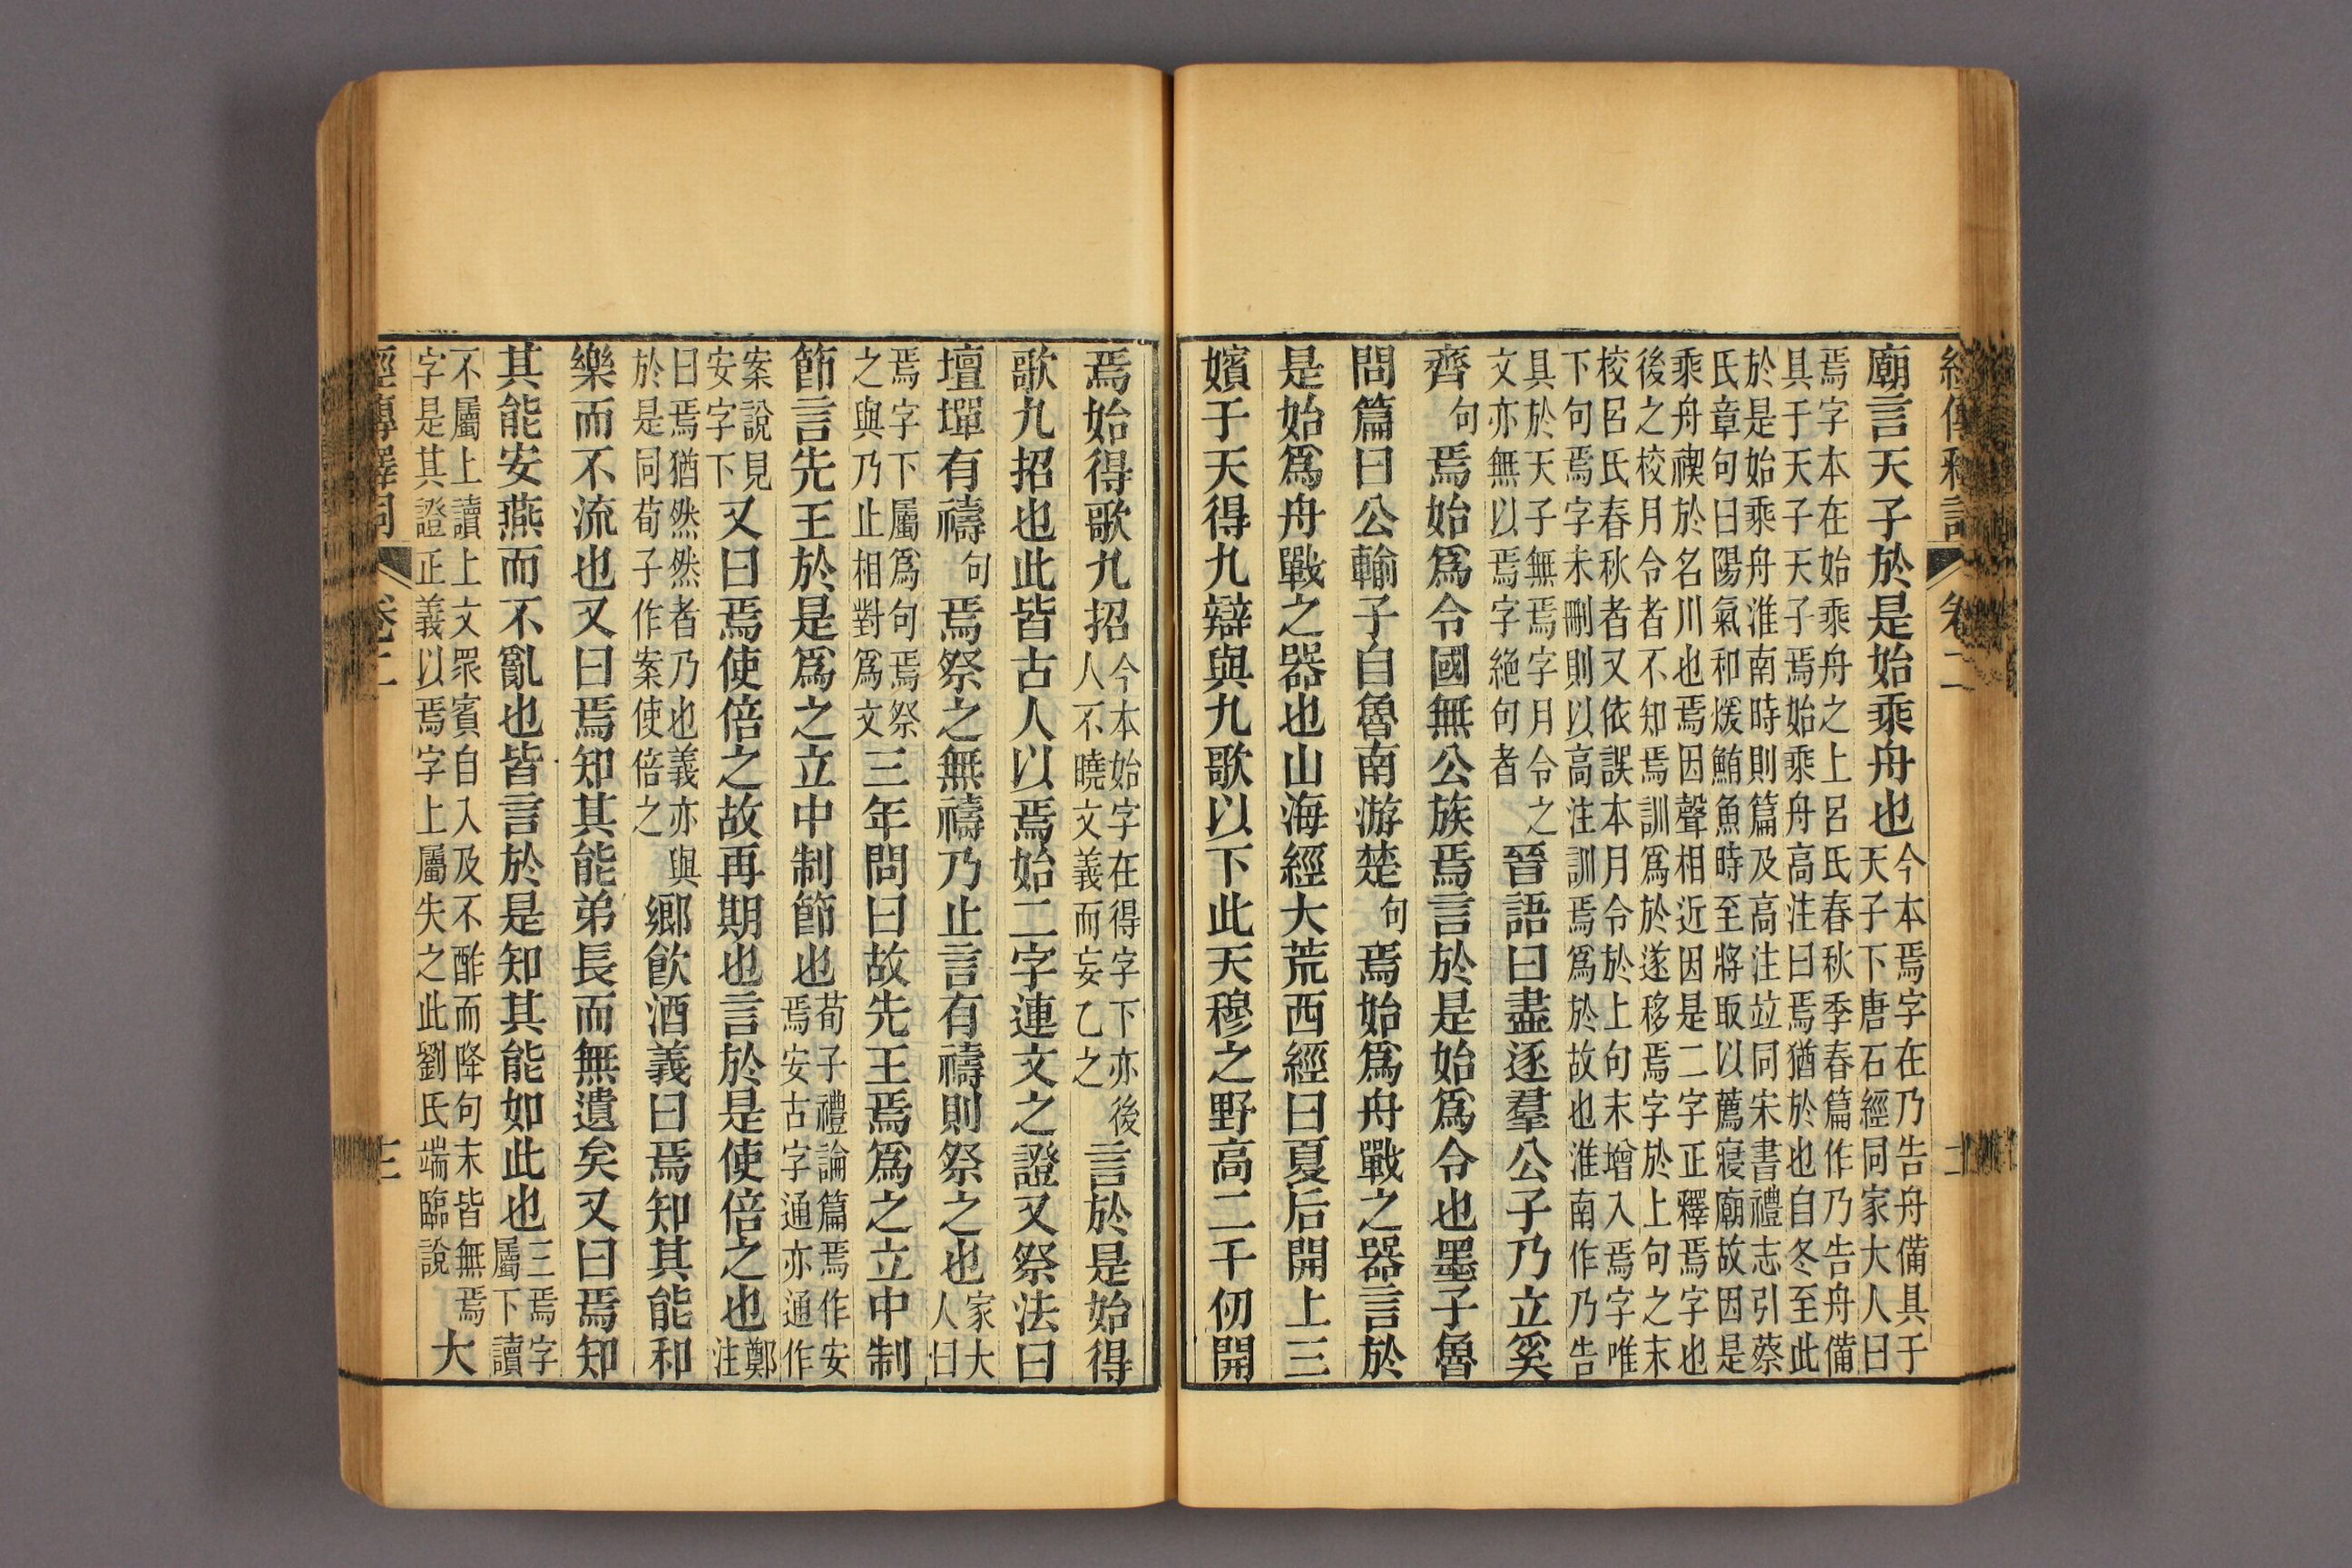 經傳釋詞 卷二
廟言天子於是始乘舟也今本焉字在乃告舟備具于天子下唐石經同家大人曰
焉字本在始乘舟之上呂氏春秋季春篇作乃告舟備
具于天子天子焉始乘舟高注曰焉猶於也自冬至此
於是始乘舟淮南時則篇及高注竝同宋書禮志引蔡
氏章句曰陽氣和煖鮪魚時至將取以薦寢廟故因是
乘舟禊於名川也焉因聲相近因是二字正釋焉字也
後之校月令者不知焉訓爲於遂移焉字於上句之末
校呂氏春秋者又依誤本月令於上句末增入焉字唯
下句焉字未刪則以高注訓焉爲於故也淮南作乃告
具於天子無焉字月令之文亦無以焉字絕句者晉語曰盡逐羣公子乃立奚
齊句焉始爲令國無公族焉言於是始爲令也墨子魯
問篇曰公輸子自魯南游楚句焉始爲舟戰之器言於
是始爲舟戰之器也山海經大荒西經曰夏后開上三
嬪于天得九辯與九歌以下此天穆之野高二千仞開
焉始得歌九招今本始字在得字下亦後人不曉文義而妄乙之言於是始得
歌九招也此皆古人以焉始二字連文之證又祭法曰
壇墠有禱句焉祭之無禱乃止言有禱則祭之也家大人曰
焉字下屬爲句焉祭之與乃止相對爲文三年問曰故先王焉爲之立中制
節言先王於是爲之立中制節也荀子禮論篇焉作安焉安古字通亦通作
案說見安字下又曰焉使倍之故再期也言於是使倍之也鄭注
曰焉猶然然者乃也義亦與於是同荀子作案使倍之鄉飮酒義曰焉知其能和
樂而不流也又曰焉知其能弟長而無遺矣又曰焉知
其能安燕而不亂也皆言於是知其能如此也三焉字屬下讀
不屬上讀上文眾賓自入及不酢而降句末皆無焉字是其證正義以焉字上屬失之此劉氏端臨說大
經傳釋詞 卷二